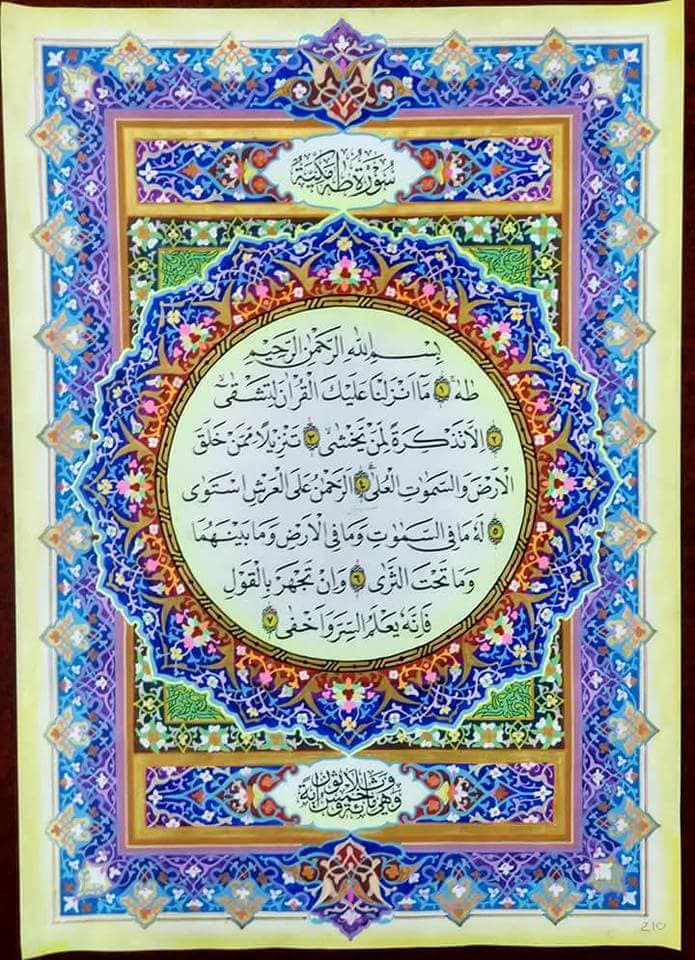 سُورَةُ طٰهٰ مَكِّيَّةٌ
بِسْمِ اللهِ الرَّحْمٰنِ الرَّحِيْمِ
طٰهٰ ۝١ مَا اَنْزَلْنَا عَلَيْكَ الْقُرْاٰنَ لِتَشْقٰى
۝٢ اِلَّا تَذْكِرَةً لِمَنْ يَخْشٰى ۝٣ تَنْزِيْلًا مِمَّنْ خَلَقَ
الْاَرْضَ وَالسَّمٰوٰتِ الْعُلٰى ۝٤ اَلرَّحْمٰنُ عَلَى الْعَرْشِ اسْتَوٰى
۝٥ لَهٗ مَا فِى السَّمٰوٰتِ وَمَا فِى الْاَرْضِ وَمَا بَيْنَهُمَا
وَمَا تَحْتَ الثَّرٰى ۝٦ وَاِنْ تَجْهَرْ بِالْقَوْلِ
فَاِنَّهٗ يَعْلَمُ السِّرَّ وَاَخْفٰى ۝٧
وَهِيَ مِائَةٌ وَخَمْسٌ وَثَلَاثُوْنَ اٰيَةً
210